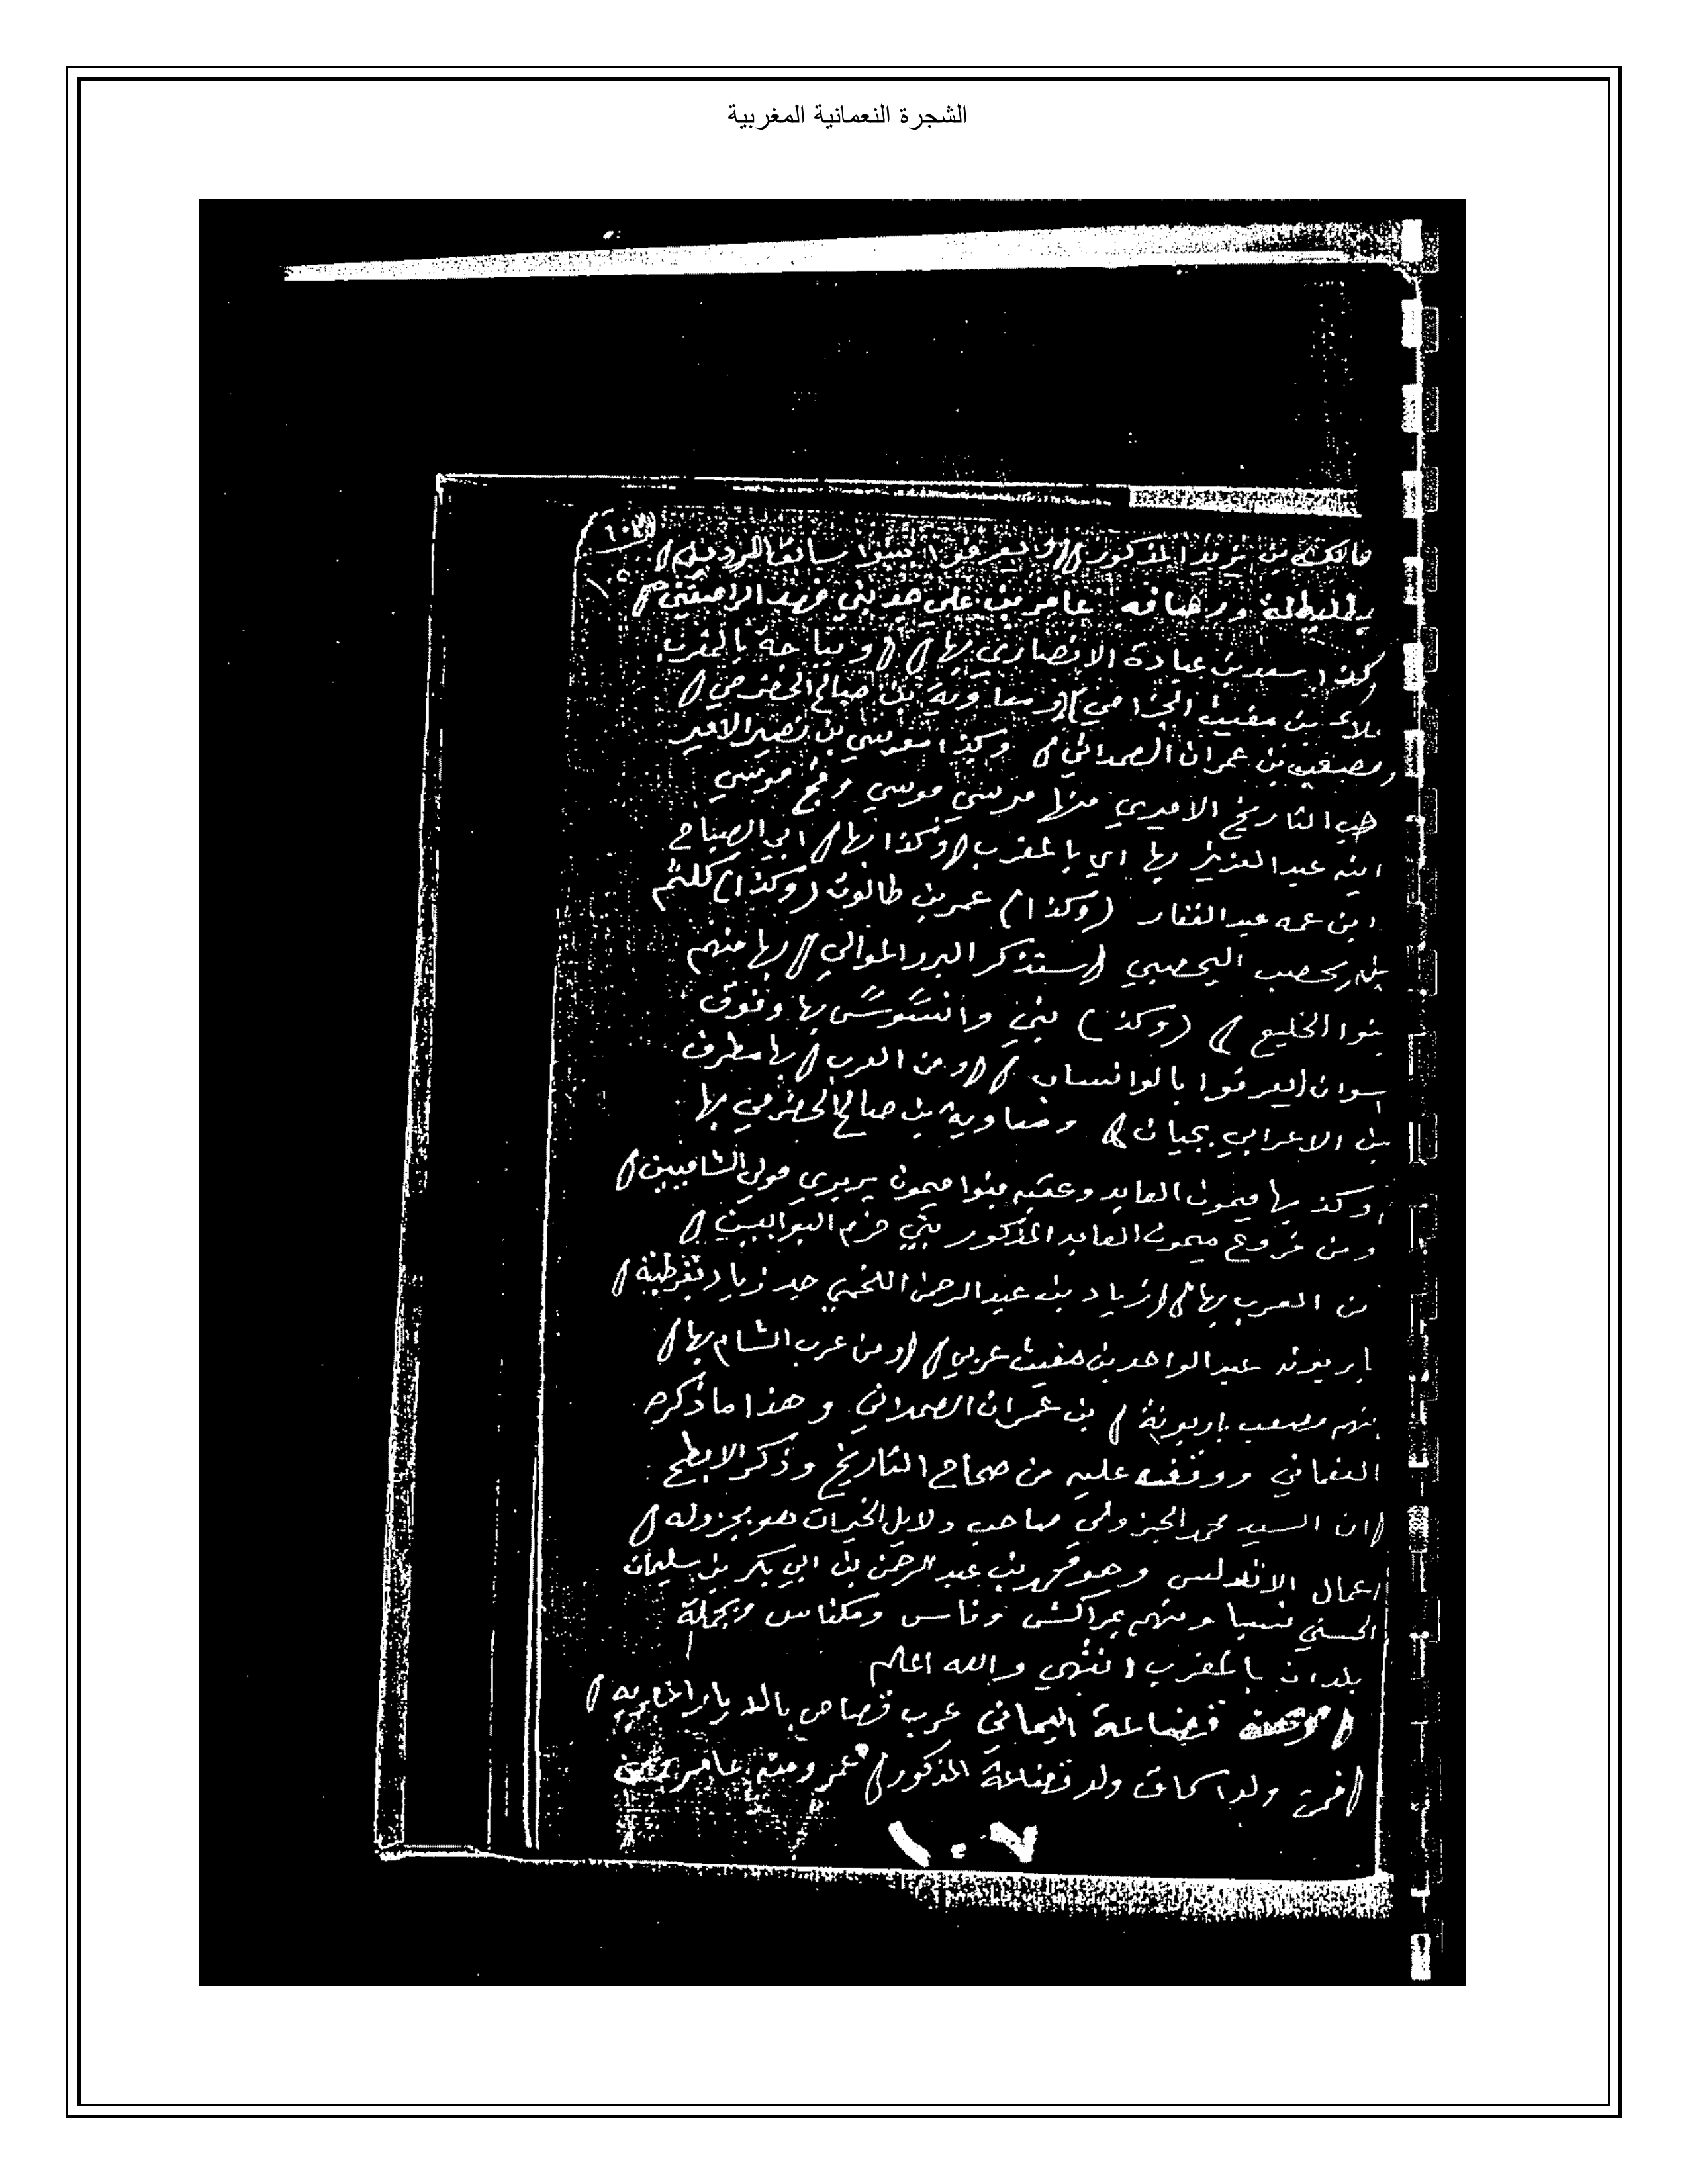 الشجرة النعمانية المغربية
من يزيد المذكور ليعرفوا بنوا
ورصافه عامر بن علي جد بني فهد
كذا سعد بن عبادة الانصاري بها وبباجة بالمغرب
بن مغيث الجزامي ومعاوية بن صالح الحضرمي
ومصعب بن عمران الهمداني وكذا موسي بن نصير الامير
التاريخ الاميري منها مرسي موسي وفج موسي
ابنه عبد العزيز بها اي بالمغرب وكذا بها ابي الصباح
ابن عمه عبد الغفار (وكذا) عمر بن طالوت (وكذا) كلثم
بن يحصب اليحصبي ستذكر البرر الموالي بها منهم
بنوا الخليع (وكذ) بني وانسوس بها وفوق
ليعرفوا بالوانساب ومن العرب بها مطرف
بن الاعرابي بجيان ومعاوية بن صالح الحضرمي بها
وكذ بها ميمون العابد وعقبه بنوا ميمون بربري مولي الشاميين
ومن فروع ميمون العابد المذكور بني حزم البوابين
من العرب بها زياد بن عبد الرحمن اللخمي جد زياد بقرطبة
عبد الواحد بن مغيث عربي ومن عرب الشام بها
منهم مصعب باربونة بن عمران الهمداني وهذا ما ذكره
النعماني ووقفه عليه من صحاح التاريخ وذكر الابطح
ان السيد محمد الجزولي صاحب دلايل الخيرات هو بجزوله
اعمال الاندلس وهو محمد بن عبد الرحمن بن ابي بكر بن سليمان
الحسني نسبا ومنهم بمراكش وفاس ومكناس وبجملة
بلدان بالمغرب انتهي والله اعلم
قضاعة اليماني عرب قصاص بالديار
فمن ولد اسحاق ولد قضاعة المذكور عمر ومنه عامر
١٠٧